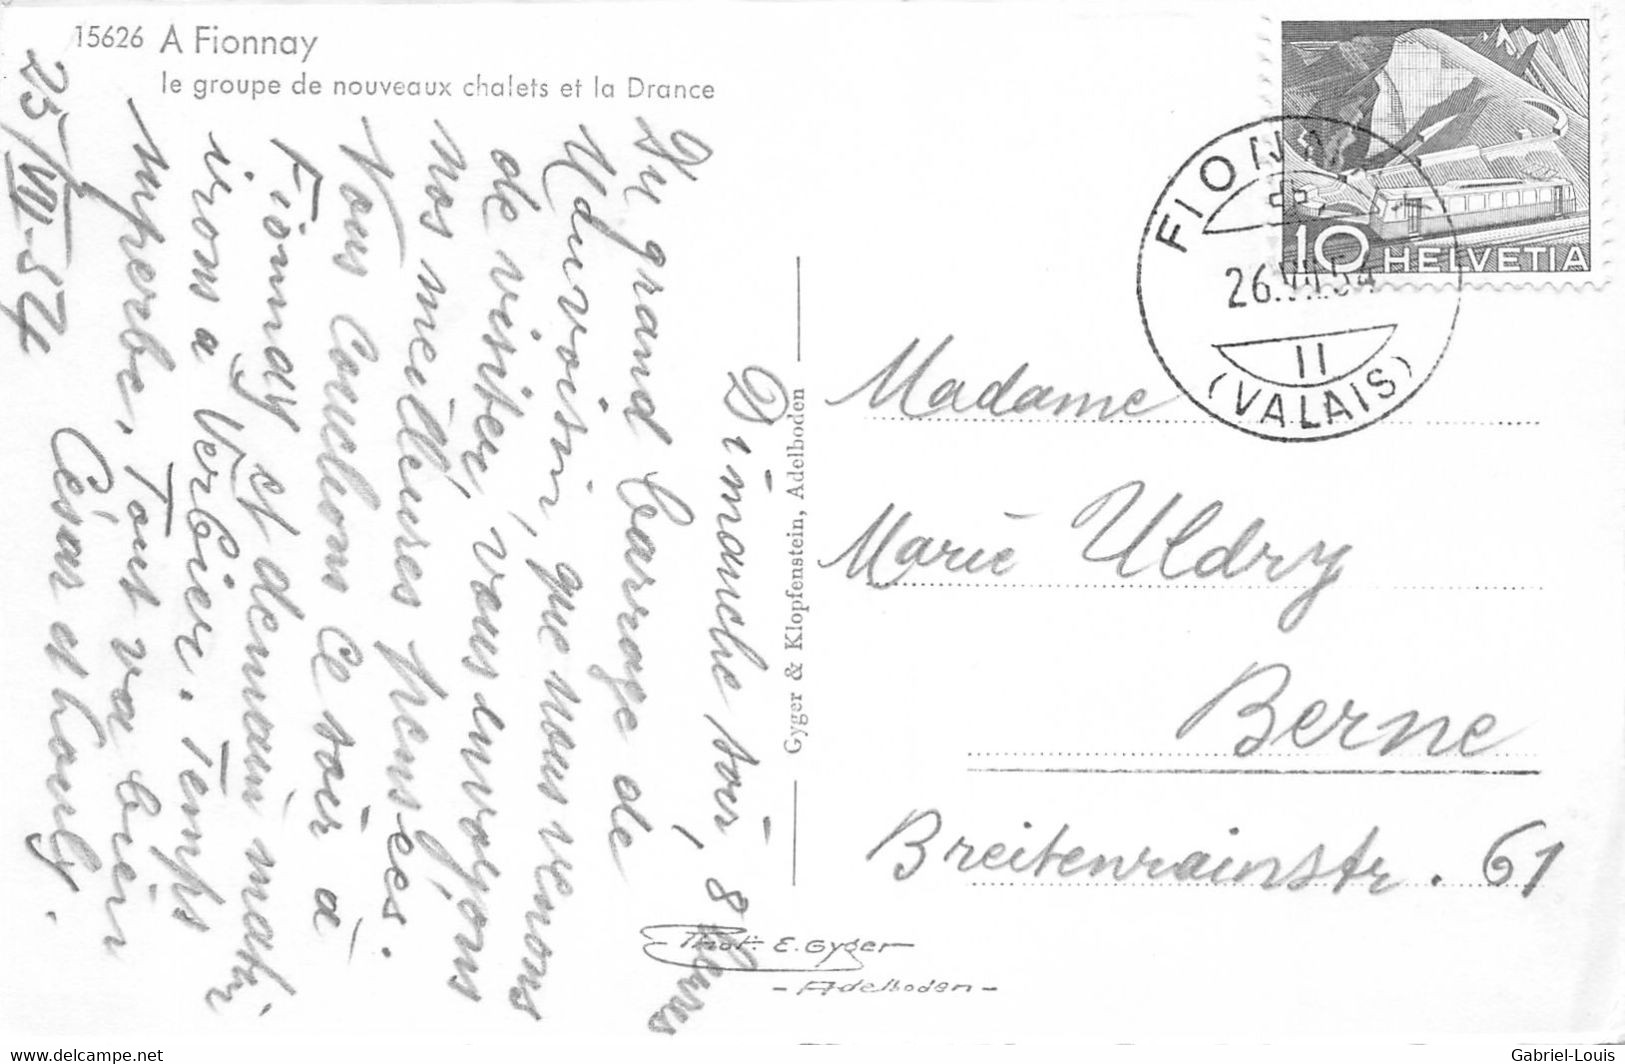 15626 A Fionnay
le groupe de nouveaux chalets et la Drance
Dimanche soir, 8 heures
Du grand barrage de
Mauvoisin, que nous venons
de visiter, vous envoyons
nos meilleures pensées.
Nous couchons ce soir à
Fionnay et demain matin
irons à Verbier. Temps
superbe. Tout va bien
César et Louly.
25/VII-54
Gyger & Klopfenstein, Adelboden
Phot. E. Gyger
- Adelboden -
FIONNAY
26.VII.54
II
(VALAIS)
10 HELVETIA
Madame
Marie Uldry
Berne
Breitenrainstr. 61
www.delcampe.net
Gabriel-Louis